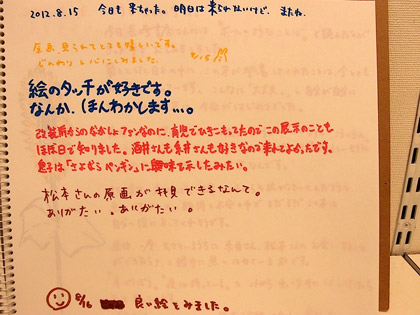 2012.8.15 今日も来ちゃった。明日は来られないけど、またね。
原画、見られてとても嬉しいです。
じんわりと心にしみました。 8/15
絵のタッチが好きです。
なんか、ほんわかします...。
改装前からのなかしょファンなのに、育児でひきこもってたのでこの展示のことも
ほぼ日で知りました。酒井さんも糸井さんも好きなので来れてよかったです。
息子は「さよならペンギン」に興味を示したみたい。
松本さんの原画が拝見できるなんて。
ありがたい。ありがたい。
8/16 良い絵をみました。